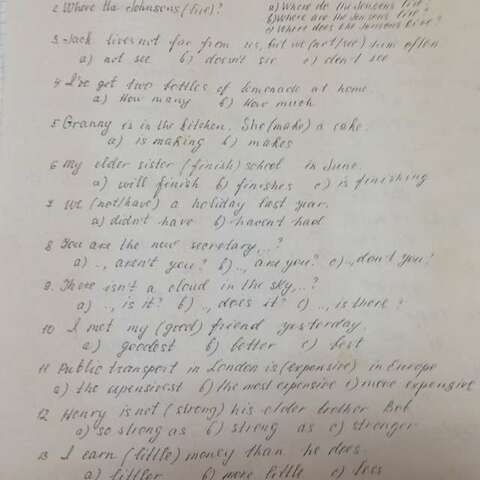 2. Where the Johnsons (live)? a) Where do the Jonsons live?
b) Where are the Jonsons live?
c) Where does the Jonsons live?
3. Jack lives not far from us, but we (not/see) him often
a) not see b) doesn't see c) don't see
4 I've got two bottles of lemonade at home.
a) How many b) How much
5 Granny is in the kitchen. She (make) a cake.
a) is making b) makes
6 My elder sister (finish) school in June.
a) will finish b) finishes c) is finishing
7. We (not/have) a holiday last year.
a) didn't have b) haven't had
8 You are the new secretary, ..?
a) .., aren't you? b) .., are you? c) .., don't you?
9. There isn't a cloud in the sky, ..?
a) .., is it? b) .., does it? c) .., is there?
10 I met my (good) friend yesterday.
a) goodest b) better c) best
11 Public transport in London is (expensive) in Europe
a) the expensivest b) the most expensive c) more expensive
12 Henry is not (strong) his elder brother Bob
a) so strong as b) strong as c) stronger
13 I earn (little) money than he does.
a) littler b) more little c) less